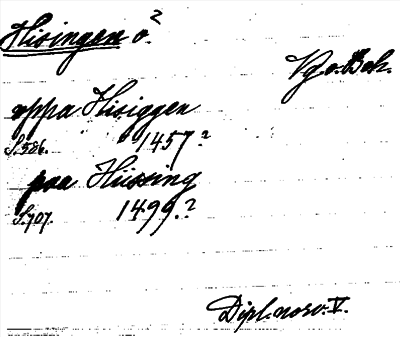 Hisingen ö.²
Vg o. Boh.
oppa Hisiggen
S. 586. 1457?
paa Hüssing
S. 707. 1499.?
Dipl. norv. V.